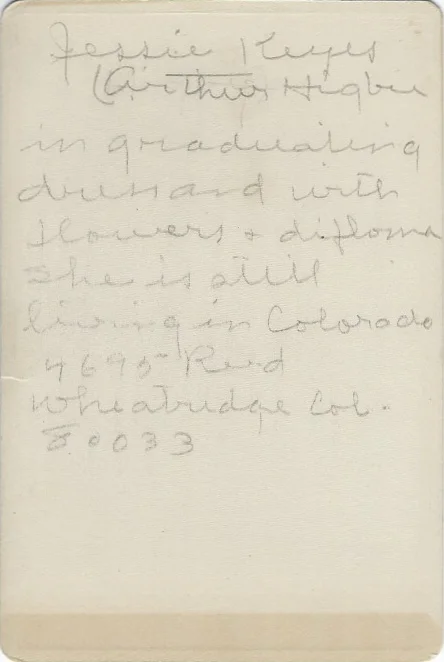 Jessie Keyes
(Arthur Higbee
in graduating
dress and with
flowers + diploma
She is still
living in Colorado
4695 Reed
Wheatridge Col.
80033